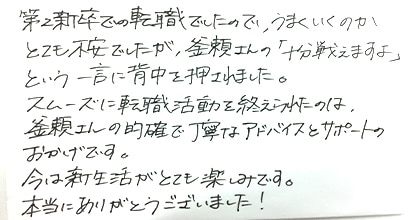 第2新卒での転職でしたので、うまくいくのか
とても不安でしたが、釜頼さんの「十分戦えますよ」
という一言に背中を押されました。
スムーズに転職活動を終えられたのは、
釜頼さんの的確で丁寧なアドバイスとサポートの
おかげです。
今は新生活がとても楽しみです。
本当にありがとうございました!